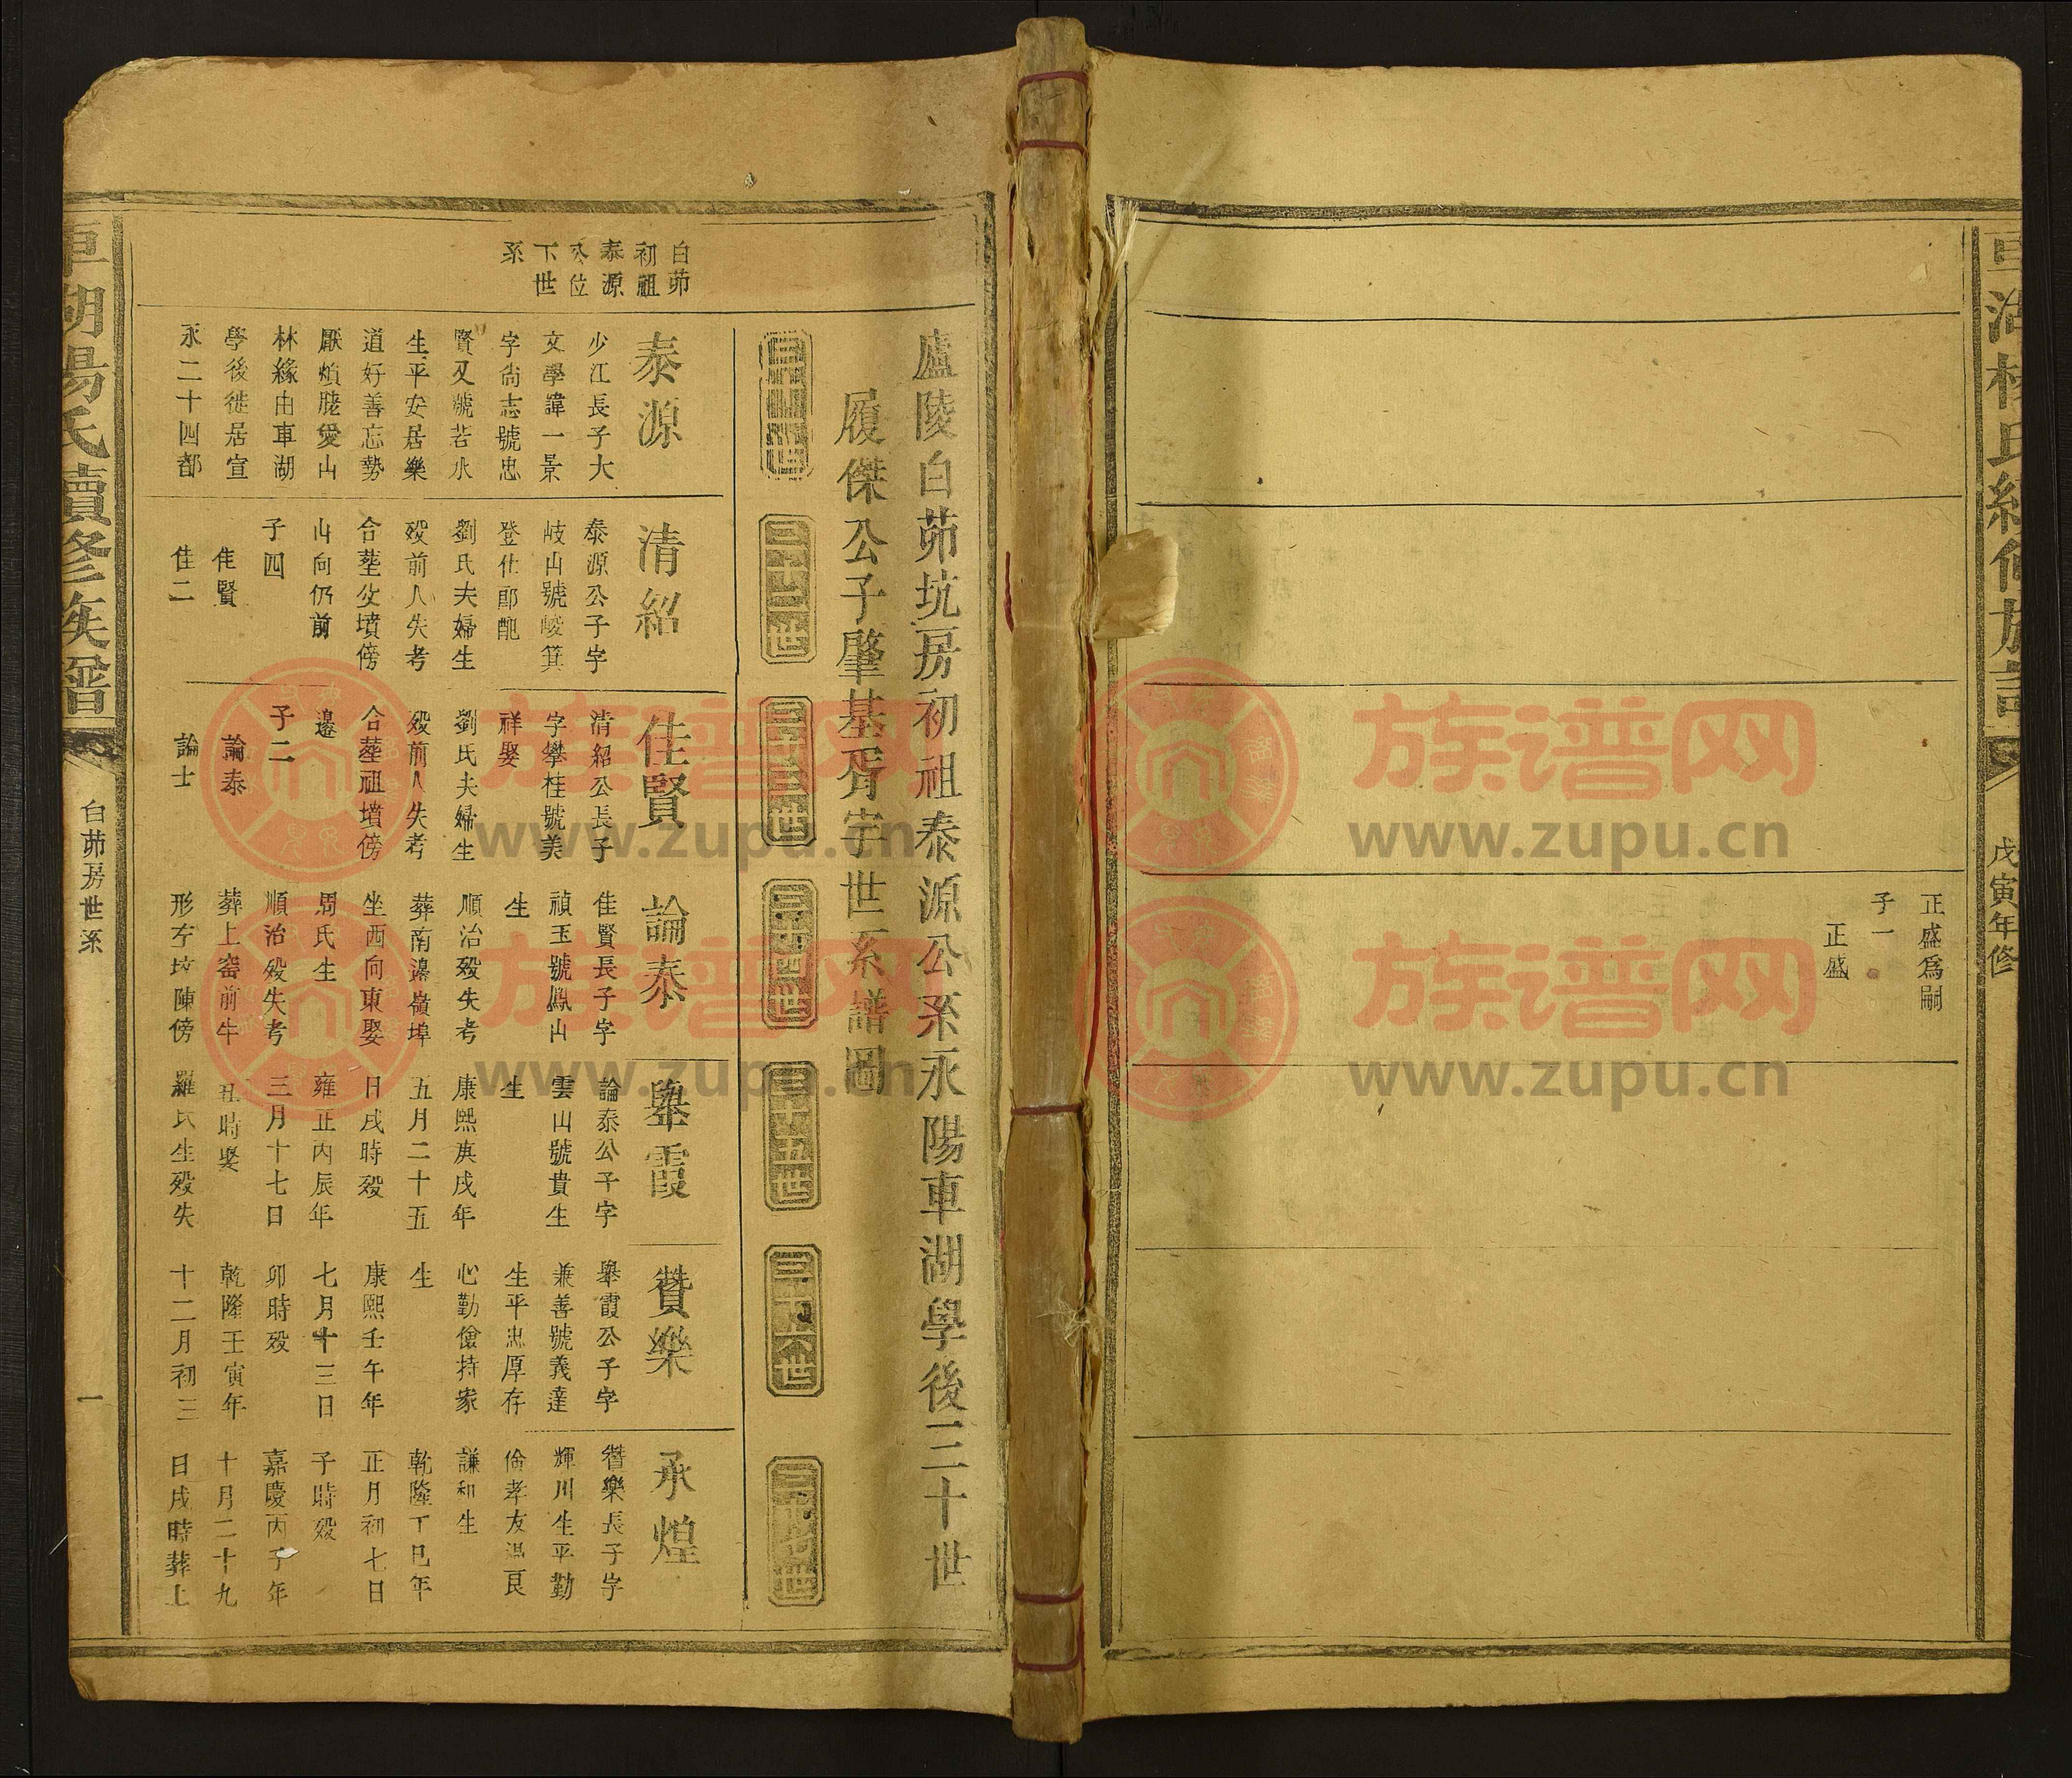 戊寅年修
正盛爲嗣
子一
正盛
廬陵白茆坑房初祖泰源公系永陽車湖學後三十世
履傑公子肇基胥宇世系譜圖
三十二世
三十三世
三十四世
三十五世
三十六世
三十七世
白茆
初祖
泰源
公位
下世
系
泰源
少江長子大
文學諱一景
字尙志號忠
賢又號若水
生平安居樂
道好善忘勢
厭煩耽愛山
林緣由車湖
學後徙居宣
永二十四都
清紹
泰源公子字
岐山號峻箕
登仕郎配
劉氏夫婦生
歿前人失考
合塟父墳傍
山向仍前
子四
佳賢
佳二
佳賢
清紹公長子
字攀桂號美
祥娶
劉氏夫婦生
歿前人失考
合塟祖墳傍
邊
子二
論泰
論士
論泰
佳賢長子字
禎玉號鳳山
生
順治歿失考
葬南邊嶺埠
坐西向東娶
周氏生
順治歿失考
葬上窑前牛
形左坟陳傍
舉霞
論泰公子字
雲山號貴生
生
康熙庚戌年
五月二十五
日戌時歿
雍正丙辰年
三月十七日
丑時娶
羅氏生歿失
贊樂
舉霞公子字
兼善號義達
生平忠厚存
心勤儉持家
生
康熙壬午年
七月十三日
卯時歿
乾隆壬寅年
十二月初三
承煌
贊樂長子字
輝川生平勤
儉孝友溫良
謙和生
乾隆丁巳年
正月初七日
子時歿
嘉慶丙子年
十月二十九
日戌時葬上
車湖楊氏續修族譜
白茆房世系
一
族谱网
www.zupu.cn
族谱网
www.zupu.cn
族谱网
www.zupu.cn
族谱网
www.zupu.cn